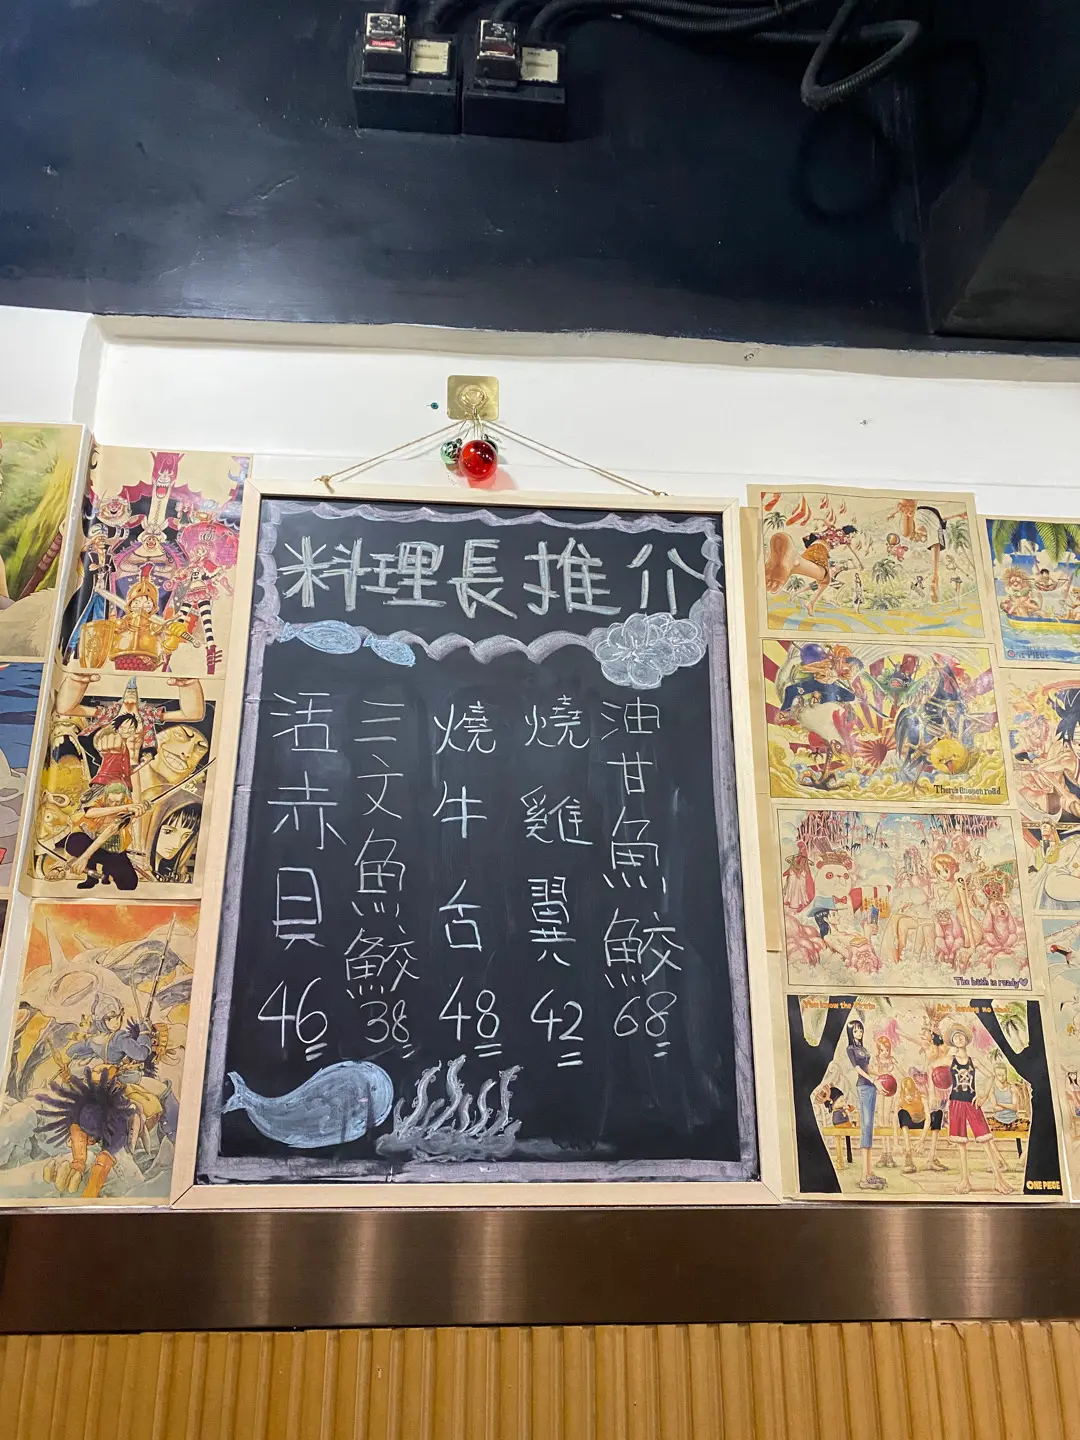 料理長推介
活赤貝 46
三文魚鮫 38
燒牛舌 48
燒雞翼 42
油甘魚鮫 68
ONE PIECE
There's Queen road
The bath is ready♡
ONE PIECE